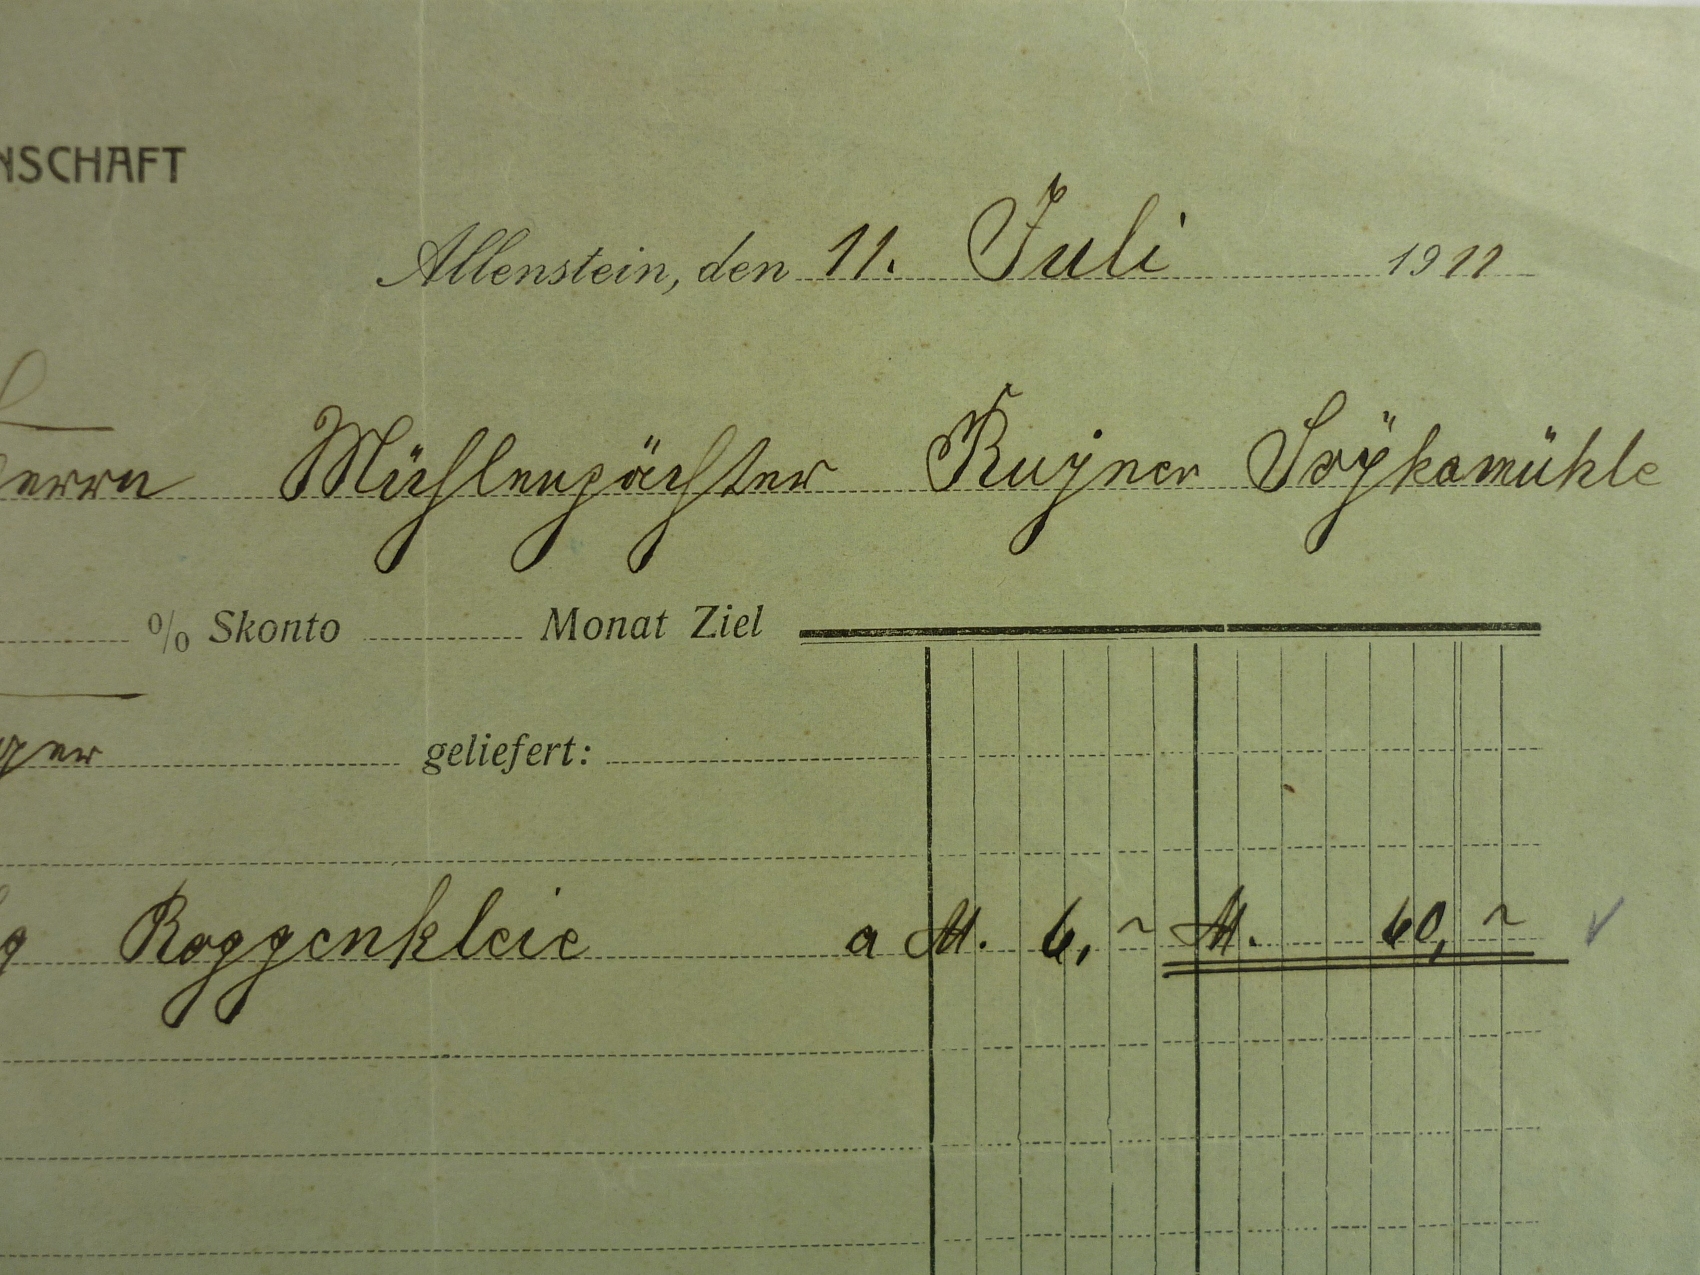 NSCHAFT
Allenstein, den 11. Juli 1911
Herrn Mühlenpächter Rujner Soÿkamühle
% Skonto Monat Ziel
geliefert:
Roggenkleie a M. 6,~ M. 60,~